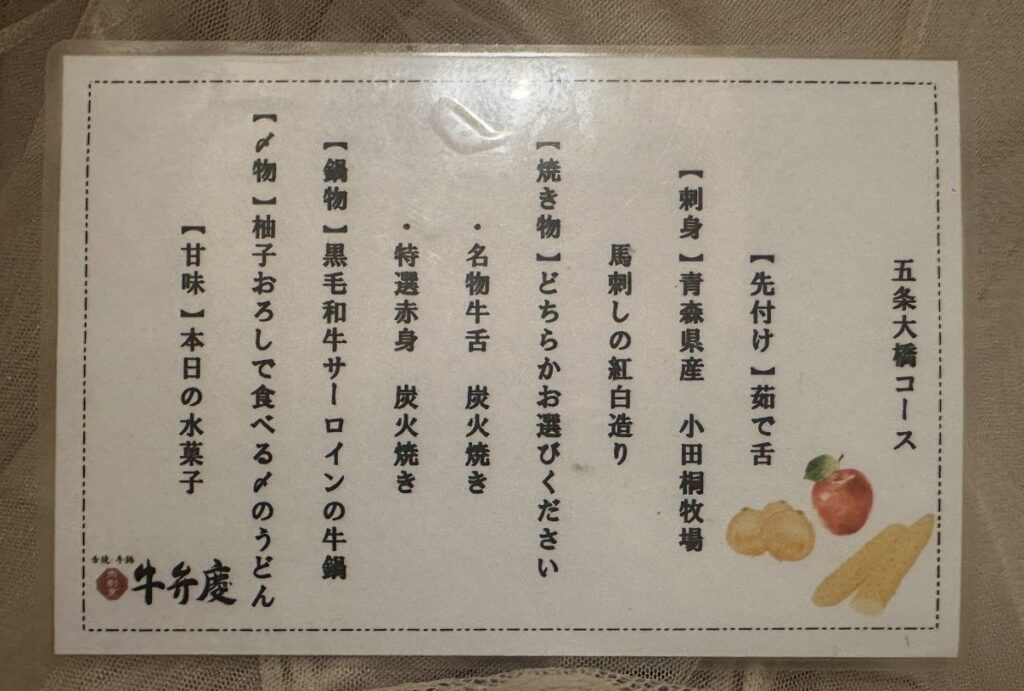 五条大橋コース
【先付け】茹で舌
【刺身】青森県産　小田桐牧場
馬刺しの紅白造り
【焼き物】どちらかお選びください
・名物牛舌　炭火焼き
・特選赤身　炭火焼き
【鍋物】黒毛和牛サーロインの牛鍋
【〆物】柚子おろしで食べる〆のうどん
【甘味】本日の水菓子
舌焼・牛鍋
牛弁慶